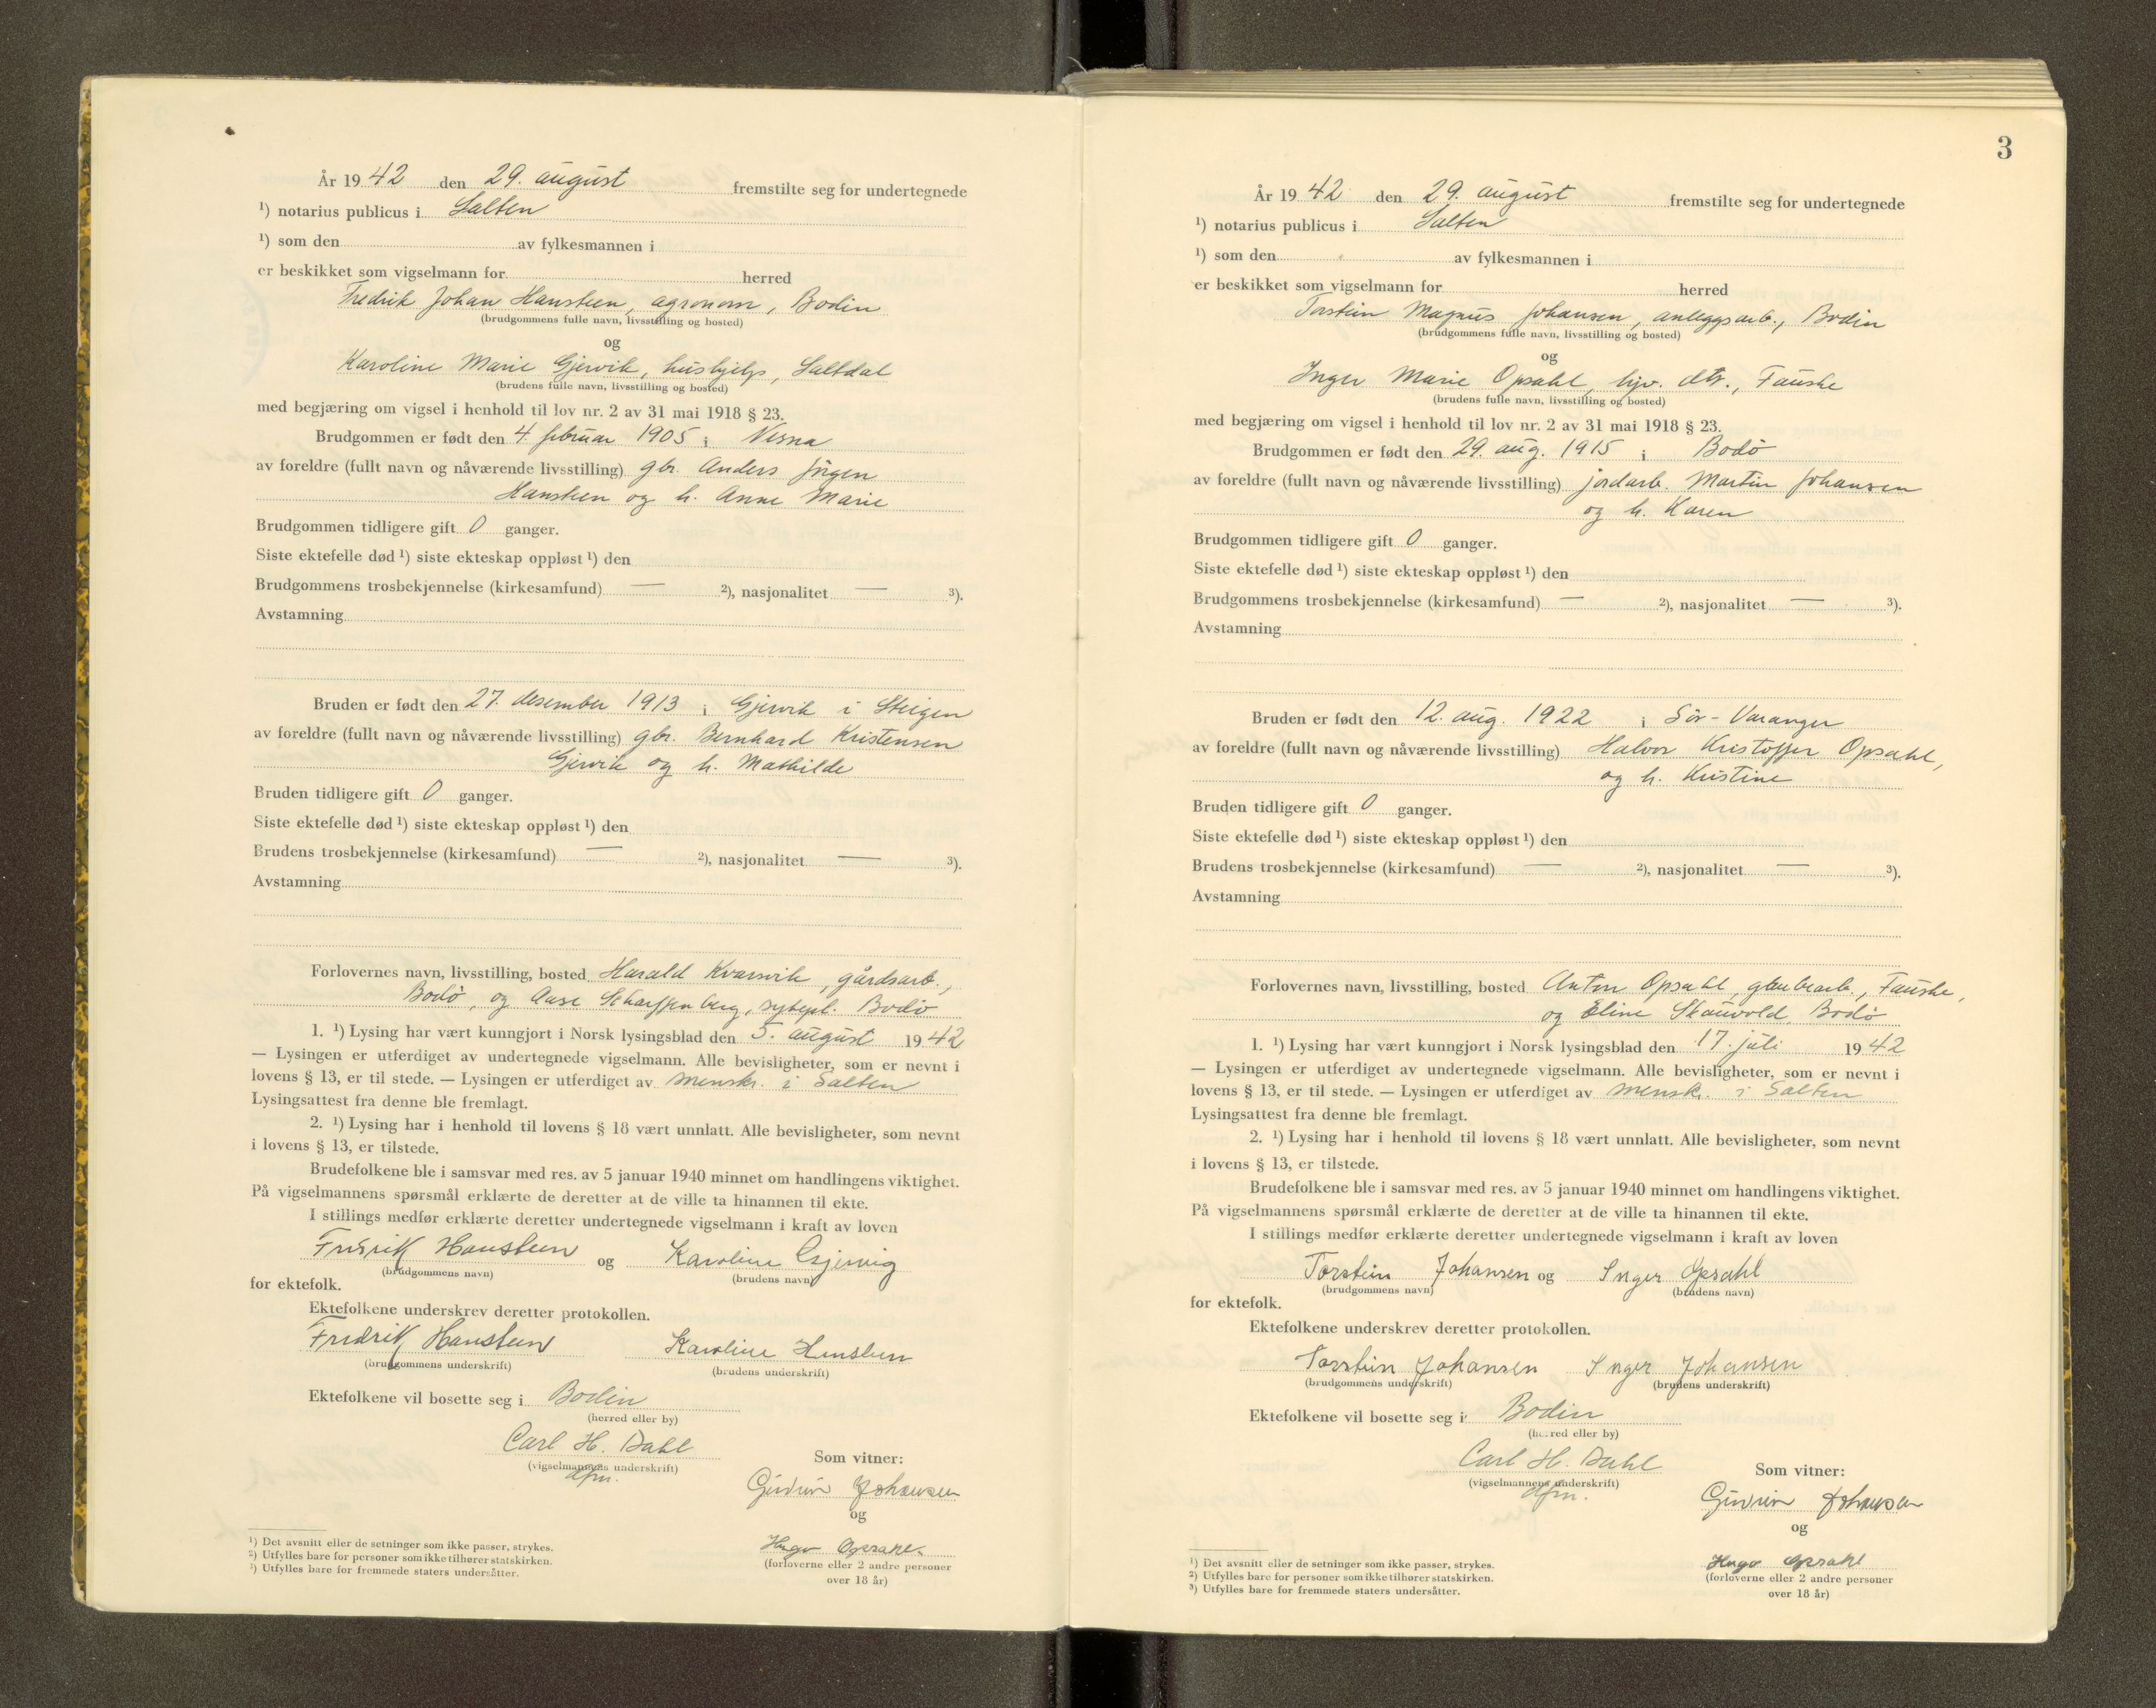 År 1942 den 29. august fremstilte seg for undertegnede
1) notarius publicus i Salten
1) som den av fylkesmannen i
er beskikket som vigselmann for herred
Fredrik Johan Hansteen, agronom, Bodin
(brudgommens fulle navn, livsstilling og bosted)
og
Karoline Marie Gjervik, hushjelp, Saltdal
(brudens fulle navn, livsstilling og bosted)
med begjæring om vigsel i henhold til lov nr. 2 av 31 mai 1918 § 23.
Brudgommen er født den 4. februar 1905 i Nesna
av foreldre (fullt navn og nåværende livsstilling) gbr. Anders Jørgen
Hansteen og h. Anne Marie
Brudgommen tidligere gift 0 ganger.
Siste ektefelle død 1) siste ekteskap oppløst 1) den
Brudgommens trosbekjennelse (kirkesamfund) — 2), nasjonalitet — 3).
Avstamning
Bruden er født den 27. desember 1913 i Gjervik i Steigen
av foreldre (fullt navn og nåværende livsstilling) gbr. Bernhard Kristensen
Gjervik og h. Mathilde
Bruden tidligere gift 0 ganger.
Siste ektefelle død 1) siste ekteskap oppløst 1) den
Brudens trosbekjennelse (kirkesamfund) — 2), nasjonalitet — 3).
Avstamning
Forlovernes navn, livsstilling, bosted Harald Kvarsvik, gårdsarb.,
Bodø, og Aase Scharffenberg, sykepl. Bodø
1. 1) Lysing har vært kunngjort i Norsk lysingsblad den 5. august 1942
— Lysingen er utferdiget av undertegnede vigselmann. Alle bevisligheter, som er nevnt i
lovens § 13, er til stede. — Lysingen er utferdiget av mensk. i Salten
Lysingsattest fra denne ble fremlagt.
2. 1) Lysing har i henhold til lovens § 18 vært unnlatt. Alle bevisligheter, som nevnt
i lovens § 13, er tilstede.
Brudefolkene ble i samsvar med res. av 5 januar 1940 minnet om handlingens viktighet.
På vigselmannens spørsmål erklærte de deretter at de ville ta hinannen til ekte.
I stillings medfør erklærte deretter undertegnede vigselmann i kraft av loven
Fredrik Hansteen og Karoline Gjervig
(brudgommens navn) (brudens navn)
for ektefolk.
Ektefolkene underskrev deretter protokollen.
Fredrik Hansteen Karoline Hansteen
(brudgommens underskrift) (brudens underskrift)
Ektefolkene vil bosette seg i Bodin
(herred eller by)
Carl H. Dahl
(vigselmannens underskrift)
dfm.
Som vitner:
Gudrun Johansen
og
Hugo Opsahl
(forloverne eller 2 andre personer
over 18 år)
1) Det avsnitt eller de setninger som ikke passer, strykes.
2) Utfylles bare for personer som ikke tilhører statskirken.
3) Utfylles bare for fremmede staters undersåtter.
3
År 1942 den 29. august fremstilte seg for undertegnede
1) notarius publicus i Salten
1) som den av fylkesmannen i
er beskikket som vigselmann for herred
Torstein Magnus Johansen, anleggsarb., Bodin
(brudgommens fulle navn, livsstilling og bosted)
og
Inger Marie Opsahl, hjv. dtr., Fauske
(brudens fulle navn, livsstilling og bosted)
med begjæring om vigsel i henhold til lov nr. 2 av 31 mai 1918 § 23.
Brudgommen er født den 29. aug. 1915 i Bodø
av foreldre (fullt navn og nåværende livsstilling) jordarb. Martin Johansen
og h. Karen
Brudgommen tidligere gift 0 ganger.
Siste ektefelle død 1) siste ekteskap oppløst 1) den
Brudgommens trosbekjennelse (kirkesamfund) — 2), nasjonalitet — 3).
Avstamning
Bruden er født den 12. aug. 1922 i Sör-Varanger
av foreldre (fullt navn og nåværende livsstilling) Halvor Kristoffer Opsahl,
og h. Kristine
Bruden tidligere gift 0 ganger.
Siste ektefelle død 1) siste ekteskap oppløst 1) den
Brudens trosbekjennelse (kirkesamfund) — 2), nasjonalitet — 3).
Avstamning
Forlovernes navn, livsstilling, bosted Anton Opsahl, grubearb., Fauske,
og Eline Skauvold, Bodø
1. 1) Lysing har vært kunngjort i Norsk lysingsblad den 17. juli 1942
— Lysingen er utferdiget av undertegnede vigselmann. Alle bevisligheter, som er nevnt i
lovens § 13, er til stede. — Lysingen er utferdiget av mensk. i Salten
Lysingsattest fra denne ble fremlagt.
2. 1) Lysing har i henhold til lovens § 18 vært unnlatt. Alle bevisligheter, som nevnt
i lovens § 13, er tilstede.
Brudefolkene ble i samsvar med res. av 5 januar 1940 minnet om handlingens viktighet.
På vigselmannens spørsmål erklærte de deretter at de ville ta hinannen til ekte.
I stillings medfør erklærte deretter undertegnede vigselmann i kraft av loven
Torstein Johansen og Inger Opsahl
(brudgommens navn) (brudens navn)
for ektefolk.
Ektefolkene underskrev deretter protokollen.
Torstein Johansen Inger Johansen
(brudgommens underskrift) (brudens underskrift)
Ektefolkene vil bosette seg i Bodin
(herred eller by)
Carl H. Dahl
(vigselmannens underskrift)
dfm.
Som vitner:
Gudrun Johansen
og
Hugo Opsahl
(forloverne eller 2 andre personer
over 18 år)
1) Det avsnitt eller de setninger som ikke passer, strykes.
2) Utfylles bare for personer som ikke tilhører statskirken.
3) Utfylles bare for fremmede staters undersåtter.